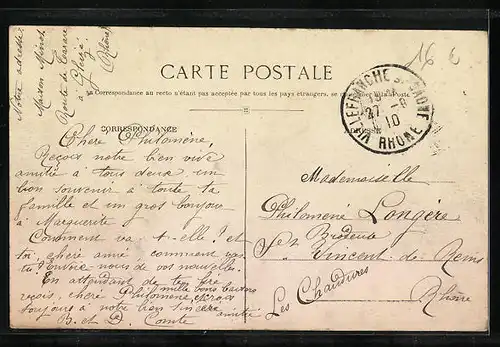 Notre adresse
Maison Minet
Route de Tarare
à Gleizé
(Rhône)
16 €
CARTE POSTALE
La Correspondance au recto n'étant pas acceptée par tous les pays étrangers, se renseigner à la Poste
CORRESPONDANCE
ADRESSE
VILLEFRANCHE S. SAONE
27 -9
10
RHONE
Chère Philomène,
Reçois notre bien vive
amitié à tous deux un
bon souvenir à toute la
famille et un gros bonjour
à Marguerite
Comment va-t-elle? et
toi, chère amie, comment vas
tu? Envoie nous de vos nouvelles.
En attendant de tes
reçois, chère Philomène, et
toujours à notre bien sincère
amitié
B. et D. Comte
Mademoiselle
Philomène Longère
Brodeuse
St Vincent de Reins
Les Chaudures
Rhône